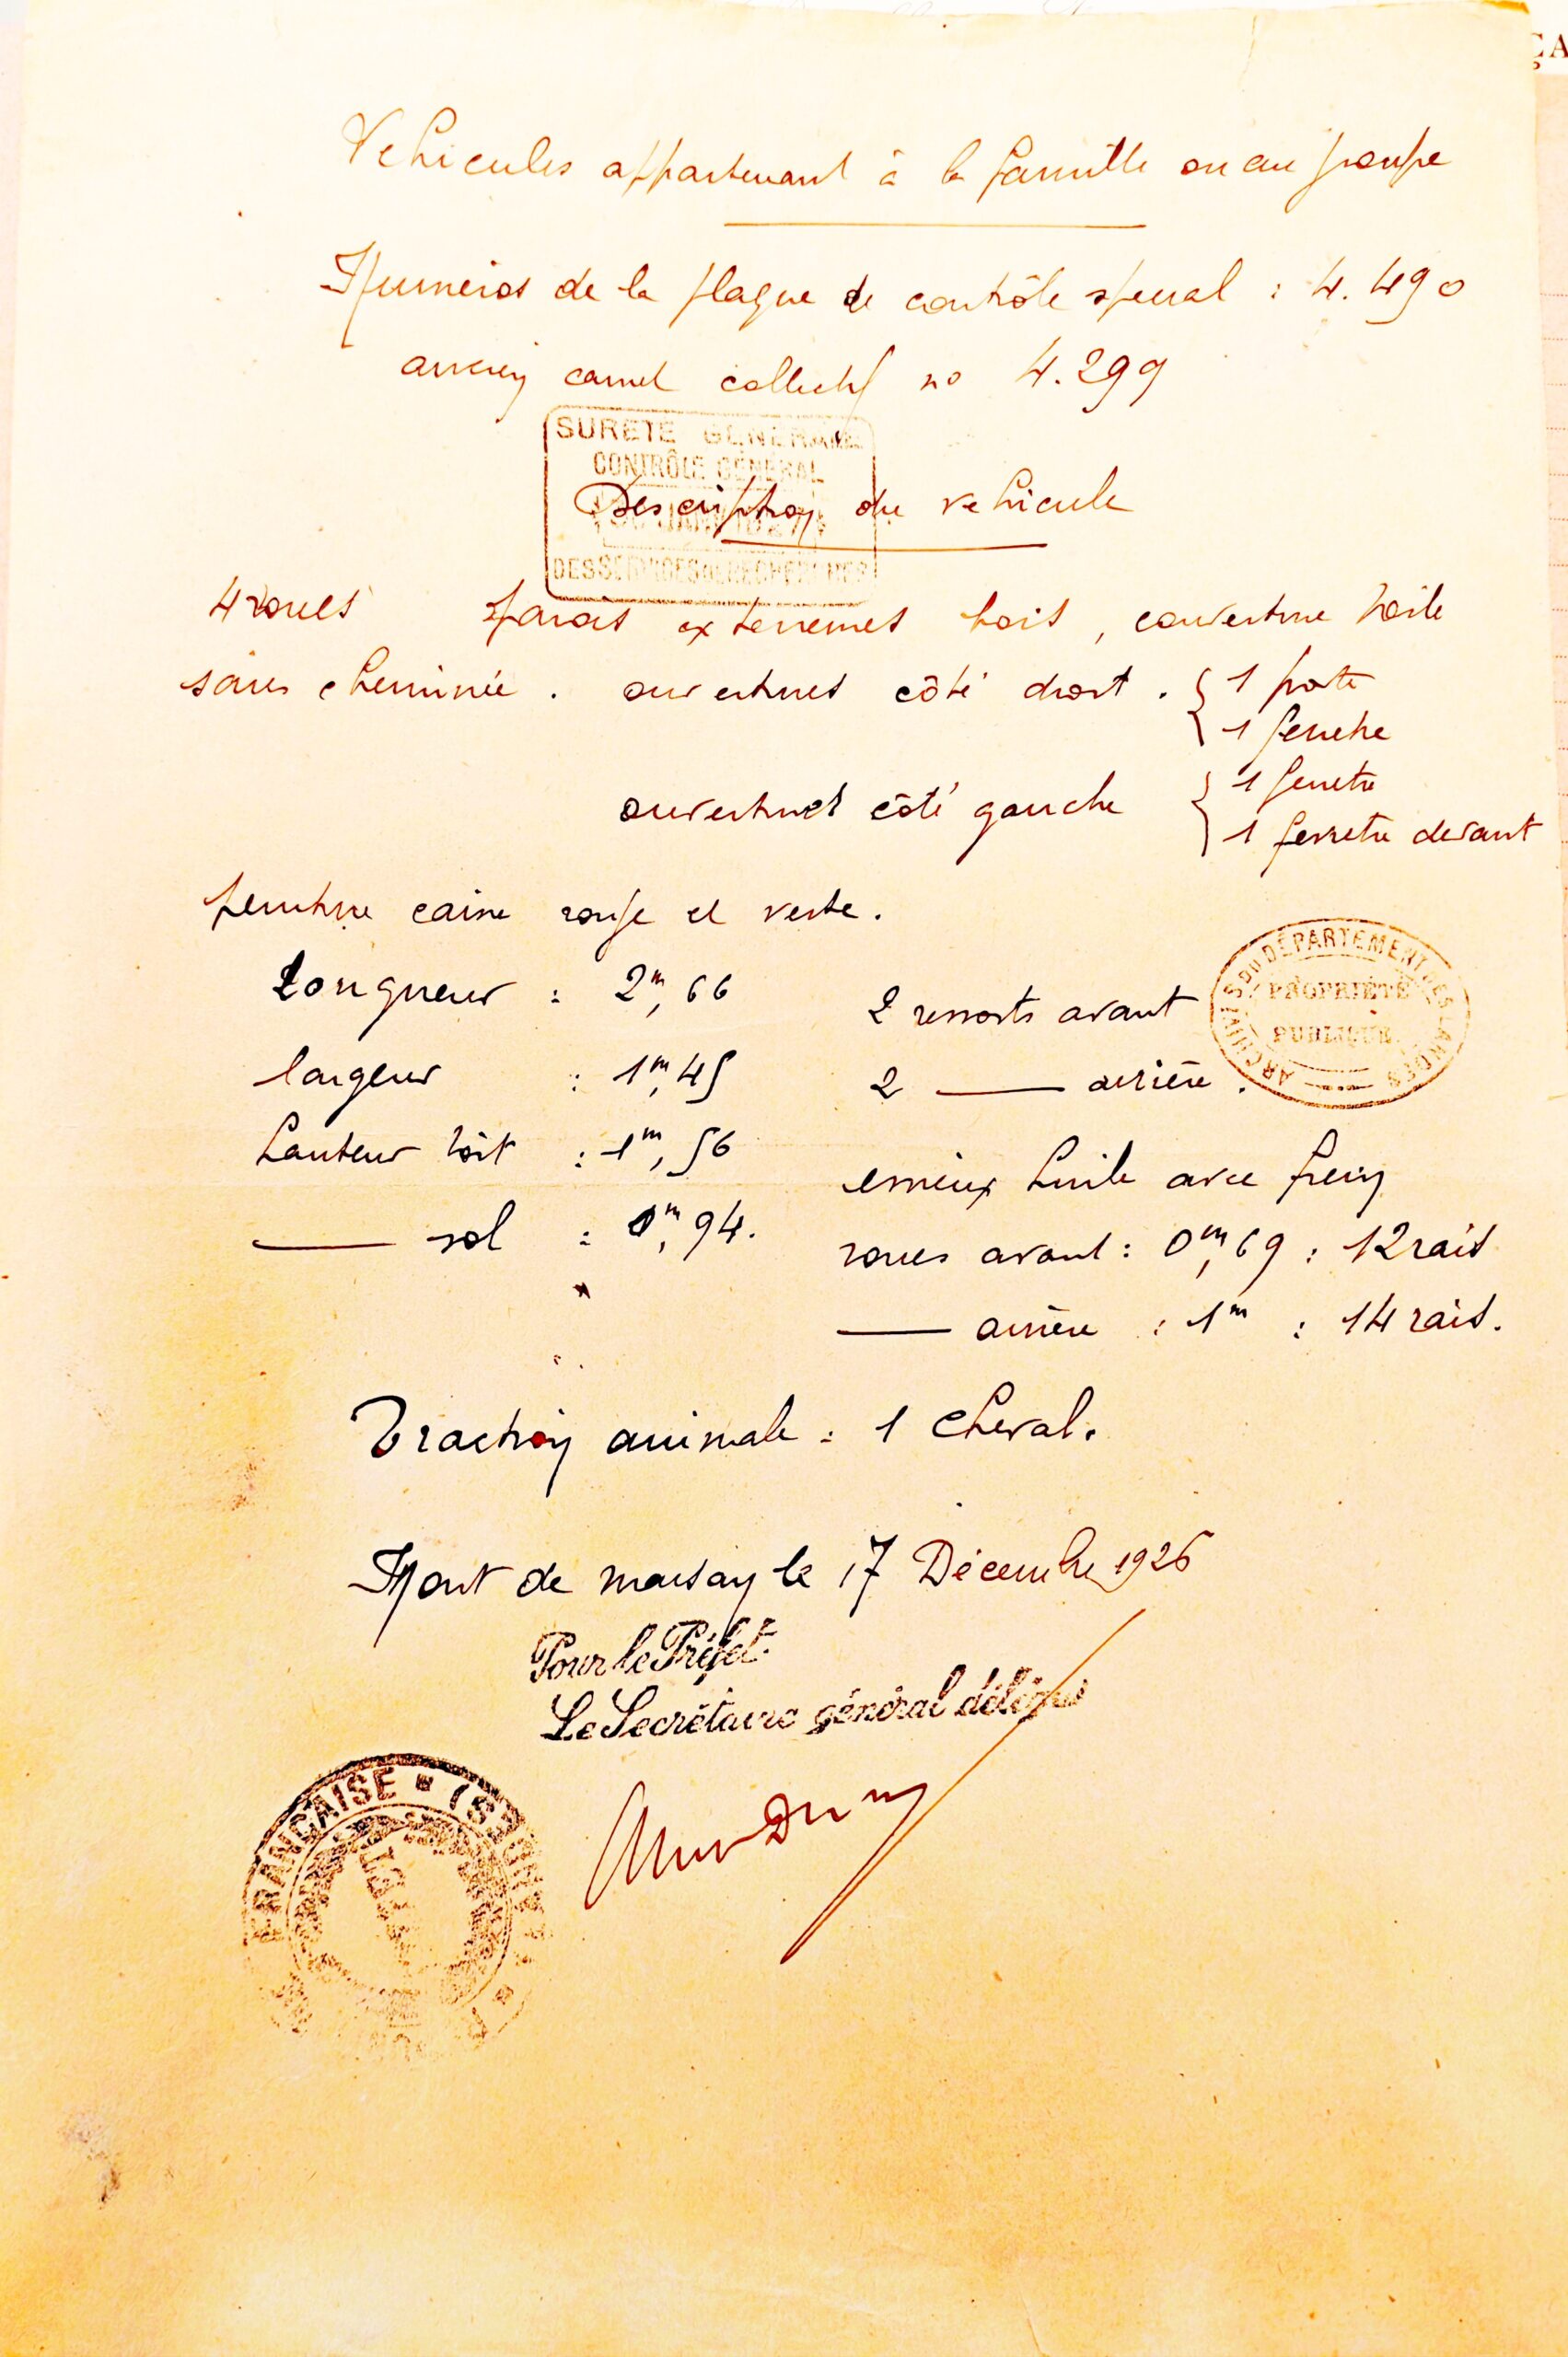 ÇA
Vehicules appartenant à la famille ou au groupe
Numéros de la plaque de contrôle special : 4.490
ancien carnet collectif no 4.299
SURETÉ GÉNÉRALE
CONTRÔLE GÉNÉRAL
DES SERVICES DE RECHERCHES
Description du vehicule
4 roues parois externes bois, couverture toile
sans cheminée. ouvertures côté droit. { 1 porte
{ 1 fenetre
ouvertures côté gauche { 1 fenetre
{ 1 fenetre devant
peinture caisse rouge et verte.
Longueur : 2m,66
largeur : 1m,45
hauteur toit : 1m,56
— sol : 0m,94.
2 ressorts avant
2 — arrière.
ARCHIVES DU DÉPARTEMENT DES LANDES
PROPRIÉTÉ
PUBLIQUE
essieux huile avec frein
roues avant : 0m,69 : 12 rais
— arrière : 1m : 14 rais.
Traction animale : 1 cheval.
Mont de marsan le 17 Décembre 1926
Pour le Préfet:
Le Secrétaire général délégué
FRANÇAISE